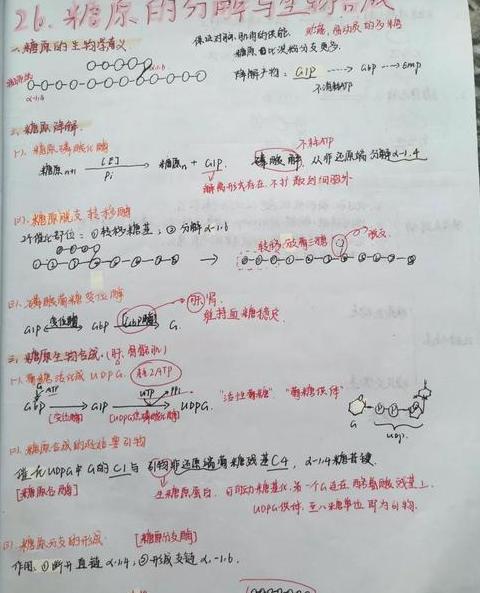 26. 糖原的分解与生物合成
一、糖原的生物学意义
保证对脑、肌肉的供能.
糖原 比淀粉分支更多.
α-1.6
α-1.6
降解产物: G1P ----> G6P ---> EMP
不消耗ATP
二、糖原降解.
(1). 糖原磷酸化酶
不耗ATP
糖原n+1 [E] Pi → 糖原n + G1P. 磷酸解, 从非还原端分解α-1.4
解离形式存在, 不扩散到细胞外
(2). 糖原脱支转移酶
2个催化部位: ①转移糖基; ②分解α-1.6
转移 葡三糖
脱支
(3). 磷酸葡糖变位酶
G1P 变位酶 G6P [G6P酶] G.
肝.肾.
维持血糖稳定
三、糖原生物合成. (肝. 骨骼肌)
(1). 葡糖活化成UDPG. 耗2ATP
G ATP
G6P → G1P UTP PPi → UDPG.
[变位酶] [UDPG焦磷酸化酶]
"活性葡糖" "葡糖供体"
G UDP.
(2). 糖原合成的起始要引物
催化UDPG中G的C1与引物非还原端葡糖残基C4, α-1.4糖苷键.
[糖原合酶]
生糖原蛋白. 可自动糖基化. 第一个G连在酪氨酸残基上.
UDPG供体, 至八糖单位即为引物.
(3). 糖原分支的形成. [糖原分支酶]
作用. ①断开直链α-1.4, ②形成支链α-1.6.